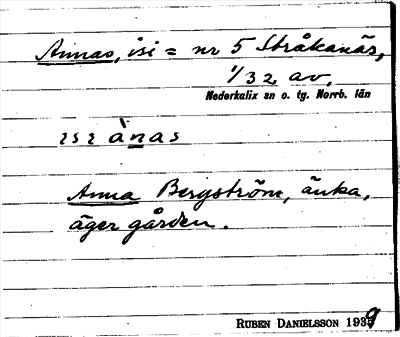 Annas, isi = nr 5 Stråkanäs,
1/32 av,
Nederkalix sn o. tg. Norrb. län
ànas
Anna Bergström, änka,
äger gården.
RUBEN DANIELSSON 1939